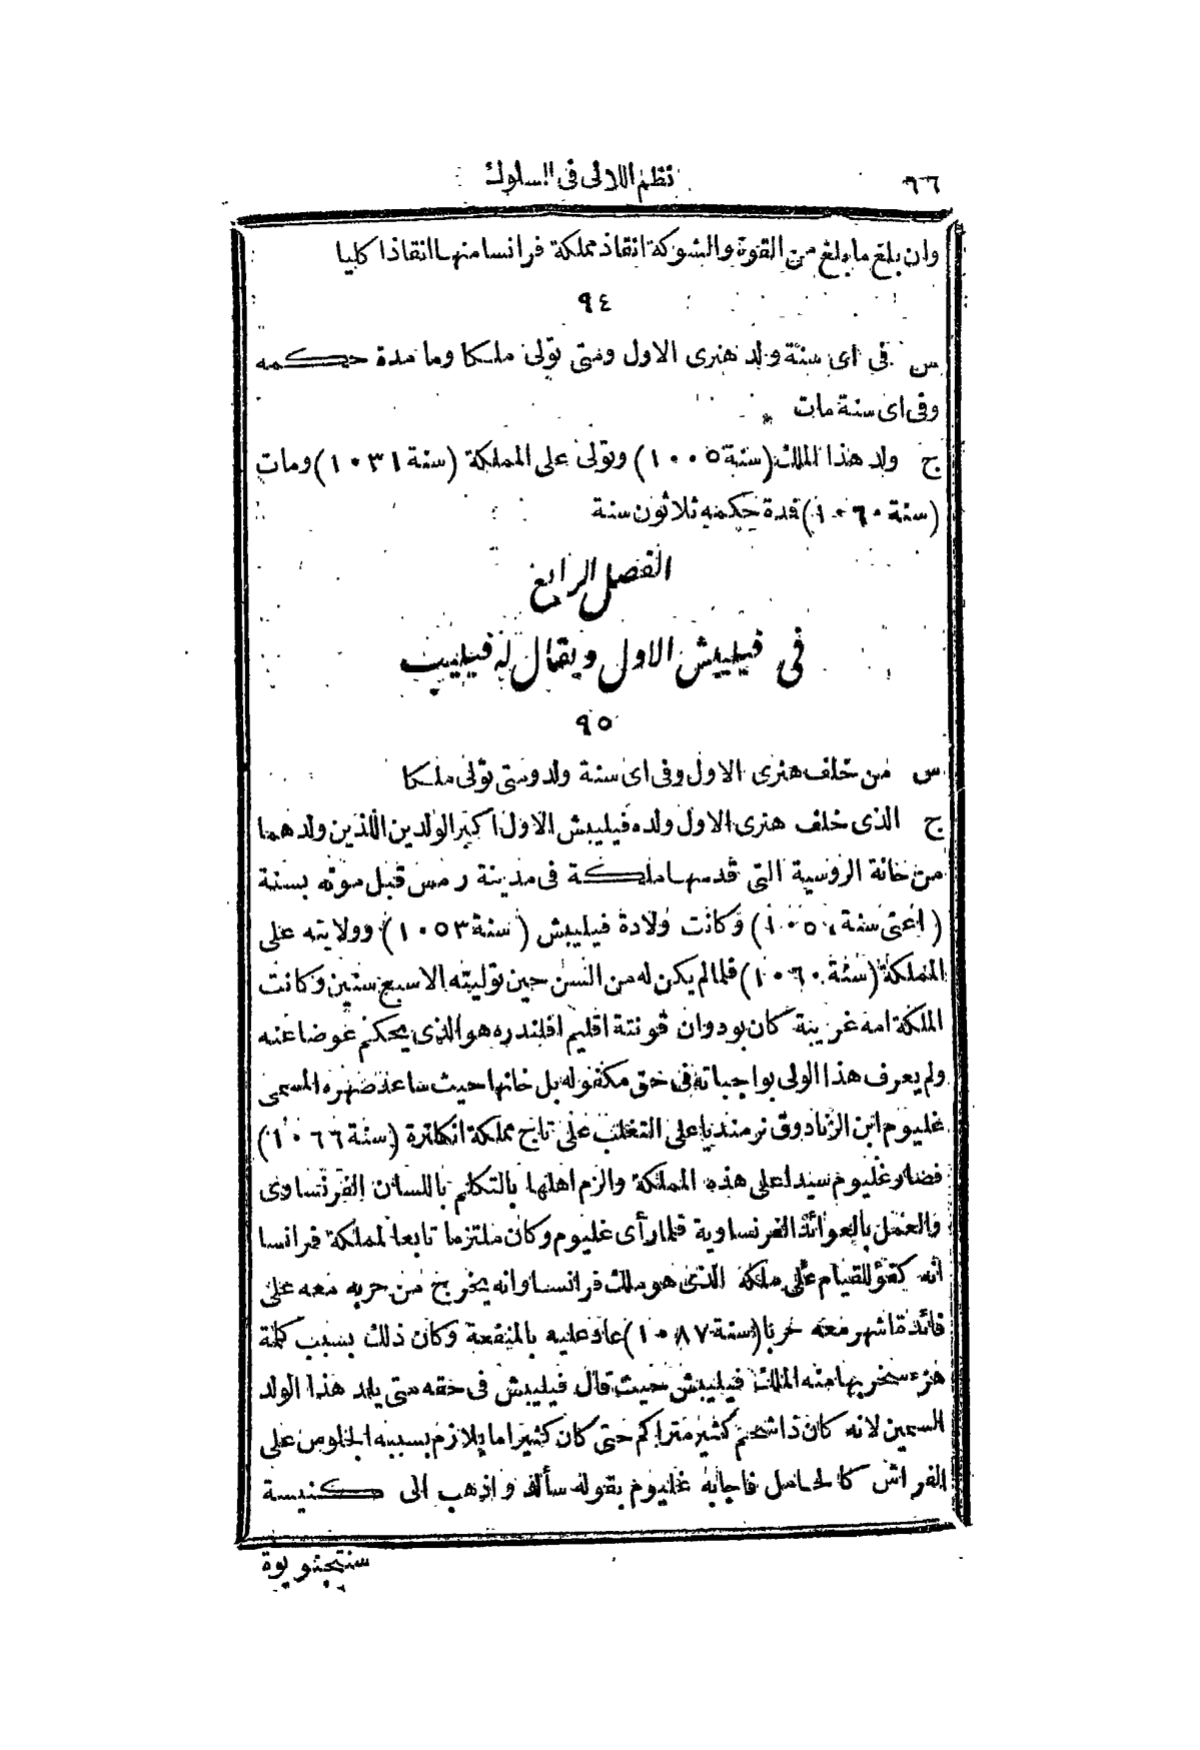 ٩٦
نظم اللالى فى السلوك
وان بلغ مابلغ من القوة والشوكة انقاذ مملكة فرانسا منها انقاذا كليا
٩٤
س فى اى سنة ولد هنرى الاول ومتى تولى ملكا وما مدة حكمه
وفى اى سنة مات *
ج ولد هذا الملك (سنة ١٠٠٥) وتولى على المملكة (سنة ١٠٣١) ومات
(سنة ١٠٦٠) فدة حكمه ثلاثون سنة
الفصل الرابع
فى فيليبش الاول ويقال له فيليب
٩٥
س من خلف هنرى الاول وفى اى سنة ولد ومتى تولى ملكا
ج الذى خلف هنرى الاول ولده فيليبش الاول اكبر الولدين اللذين ولدهما
من خانة الروسية التى قدمها ملكة فى مدينة رمس قبل موته بسنة
(اعنى سنة ١٠٥٠) وكانت ولادة فيليبش (سنة ١٠٥٣) وولايته على
المملكة (سنة ١٠٦٠) فلما لم يكن له من السن حين توليته الا سبع سنين وكانت
الملكة امه غريبة كان بودوان قونتة اقليم افلندره هو الذى يحكم عوضا عنه
ولم يعرف هذا الولى بواجباته فى حق مكفوله بل خانها حيث ساعد صهره المسمى
غليوم ابن الزنا دوق نرمنديا على التغلب على تاج مملكة انكلترة (سنة ١٠٦٦)
فصار غليوم سيدا على هذه المملكة والزم اهلها بالتكلم باللسان الفرنساوى
والعمل بالعوائد الفرنساوية فلما رأى غليوم وكان ملتزما تابعا لمملكة فرانسا
انه كفؤ للقيام على ملكه الذى هو ملك فرانسا وانه يخرج من حربه معه على
فائدة اشهر معه حربا (سنة ١٠٨٧) عاد عليه بالمنفعة وكان ذلك بسبب كلمة
هزء سخر بها منه الملك فيليبش حيث قال فيليبش فى حقه متى يلد هذا الولد
السمين لانه كان ذا شحم كثير متراكم حتى كان كثيرا ما يلازم بسببه الجلوس على
الفراش كالحامل فاجابه غليوم بقوله سألد واذهب الى كنيسة
سنتجنويوة